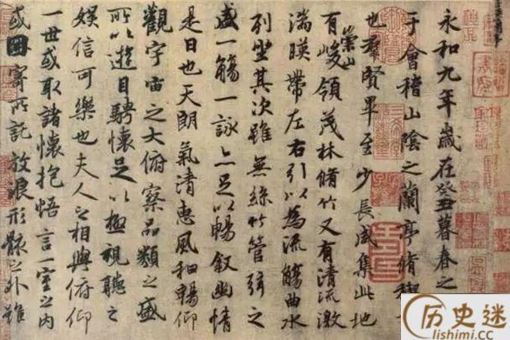 永和九年歲在癸丑暮春之
于會稽山陰之蘭亭脩禊
也群賢畢至少長咸集此地
有崇山峻領茂林脩竹又有清流激
湍暎帶左右引以為流觴曲水
列坐其次雖無絲竹管弦之
盛一觴一詠亦足以暢敘幽情
是日也天朗氣清惠風和暢仰
觀宇宙之大俯察品類之盛
所以遊目騁懷足以極視聽之
娛信可樂也夫人之相與俯仰
一世或取諸懷抱悟言一室之內
或因寄所託放浪形骸之外雖
历史迷
lishimi.cc